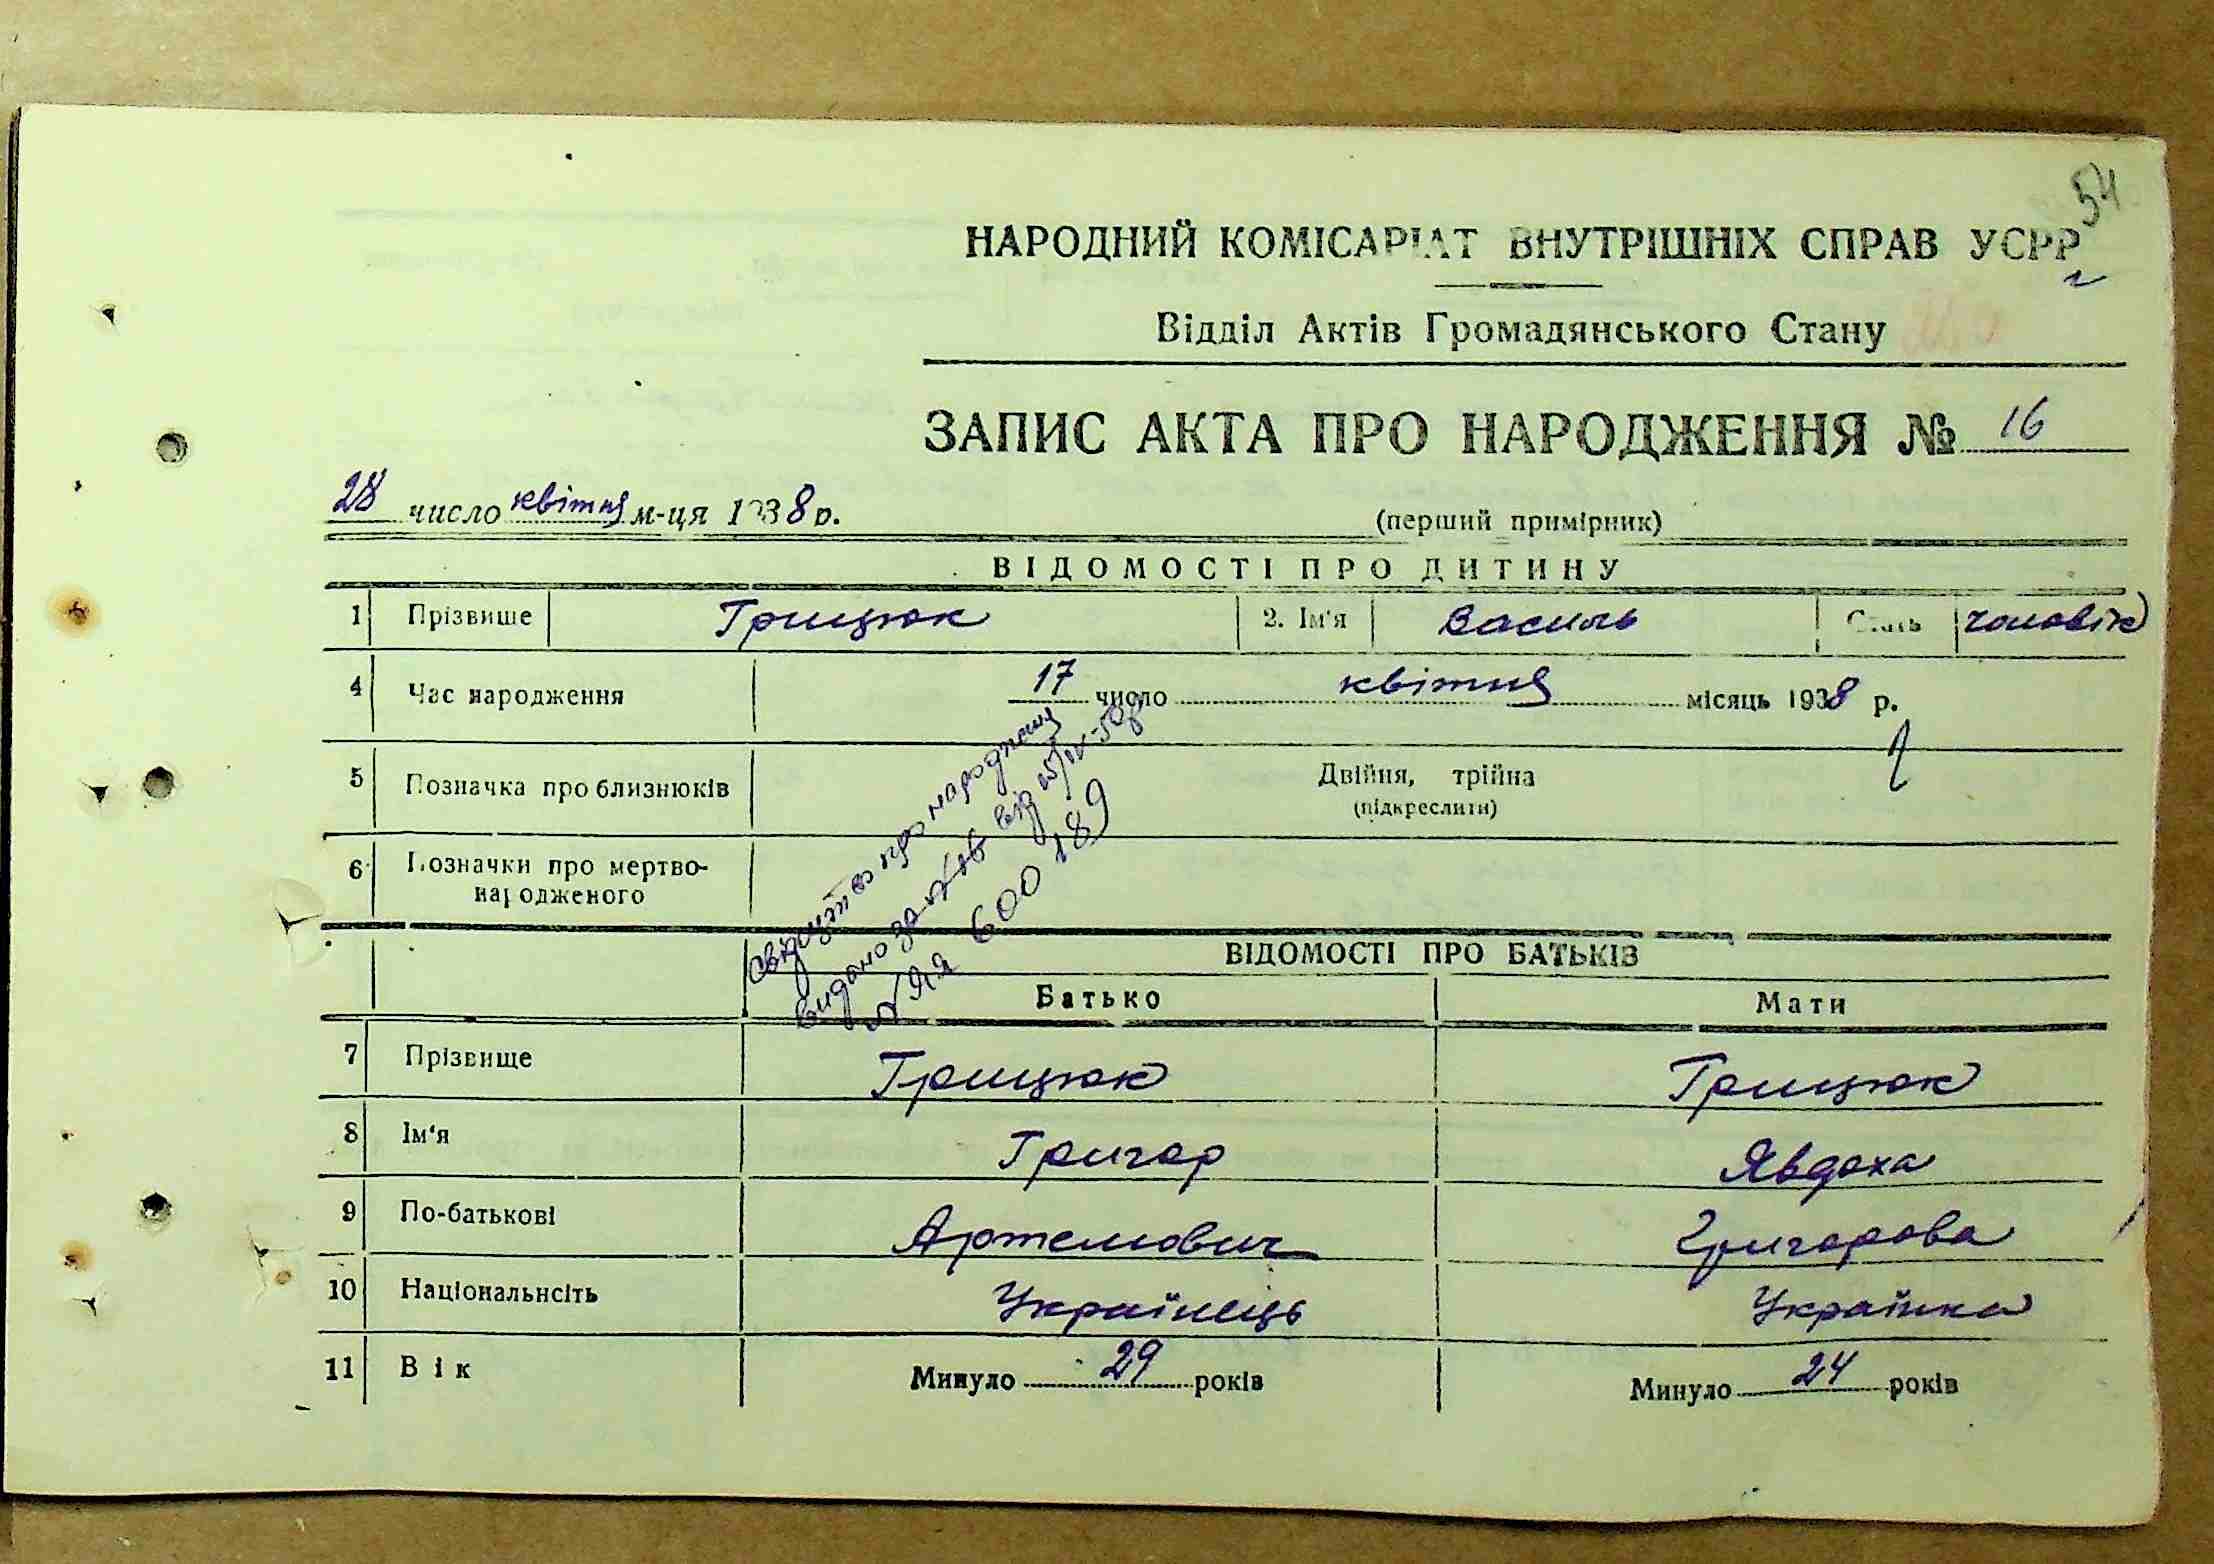 54
НАРОДНИЙ КОМІСАРІАТ ВНУТРІШНІХ СПРАВ УСРР
Відділ Актів Громадянського Стану
ЗАПИС АКТА ПРО НАРОДЖЕННЯ № 16
28 число квітня м-ця 1938 р.
(перший примірник)
ВІДОМОСТІ ПРО ДИТИНУ
1 Прізвище Грицюк 2. Ім'я Василь Стать чоловік
4 Час народження 17 число квітня місяць 1938 р.
5 Позначка про близнюків Двійня, трійна
(підкреслити)
6 Позначки про мертво-
народженого
свідоцтво про народження
видано за №16 від
№ ЯЯ 600189
ВІДОМОСТІ ПРО БАТЬКІВ
Батько Мати
7 Прізвище Грицюк Грицюк
8 Ім'я Григор Явдоха
9 По-батькові Артемович Григорова
10 Національнсіть Українець Українка
11 Вік Минуло 29 років Минуло 24 років